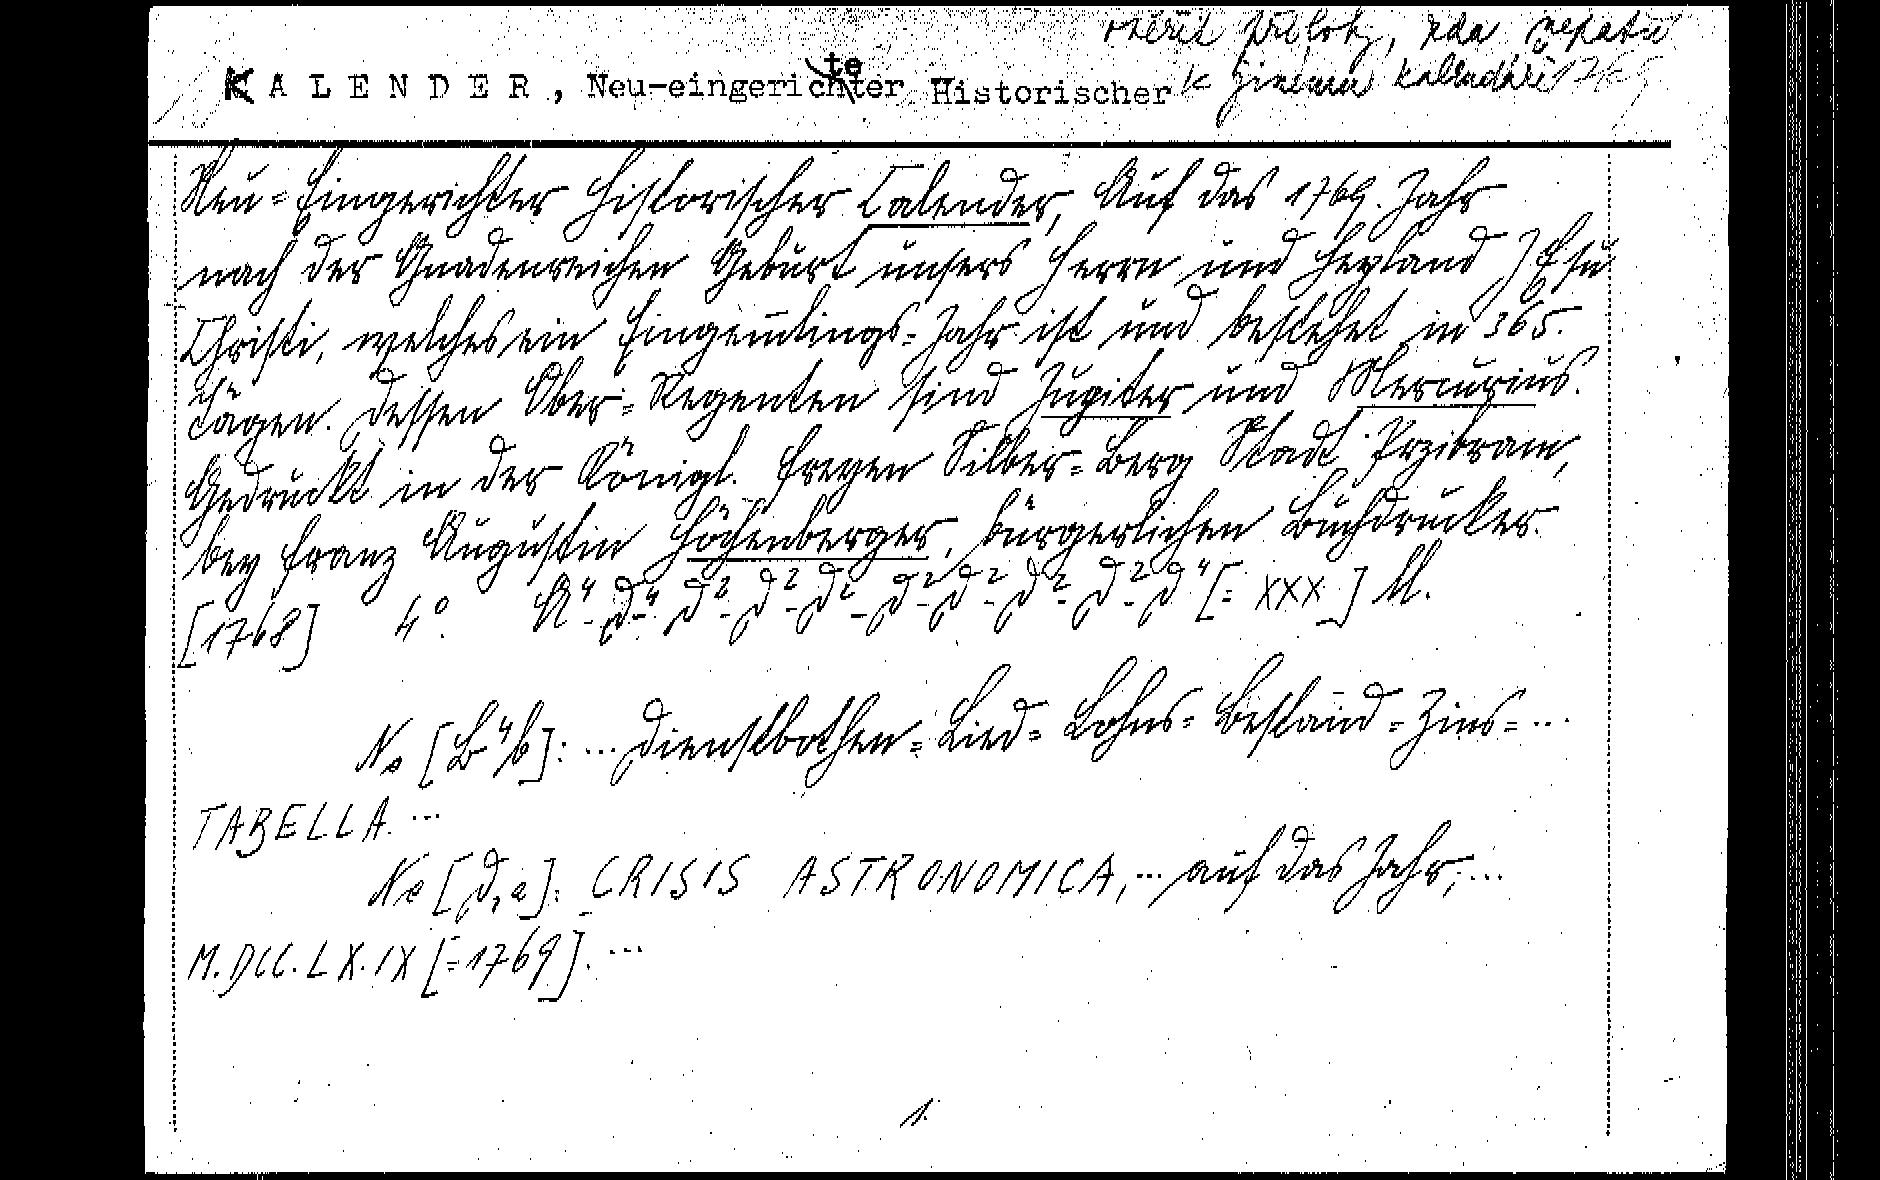 ověřit přílohy, zda nepatří
KALENDER, Neu-eingerichteter Historischer k jinému kalendáři 1769
Neu-Eingerichter Historischer Calender, Auf das 1769. Jahr
nach der Gnadenreichen Geburt unsers Herrn und Heyland JEsu
Christi, welches ein Jahr ist und bestehet in 365.
Tägen. Dessen Ober-Regenten sind Jupiter und Mercurius.
Gedruckt in der Königl. freyen Silber-Berg Stadt Przibram,
bey Franz Augustin Höchenberger, bürgerlichen Buchdrucker.
[1768] 4°. A⁴-D⁴- D²-D²-D²-D²-D²-D²-D²-D⁴ [= XXX] ll.
Na [B⁴b]: ... Dienstbothen-Lied-Lohns-Bestand-Zins-...
TABELLA. ...
Na [D,a]: CRISIS ASTRONOMICA, ... auf das Jahr, ...
M.DCC.LX.IX [=1769]. ...
1.